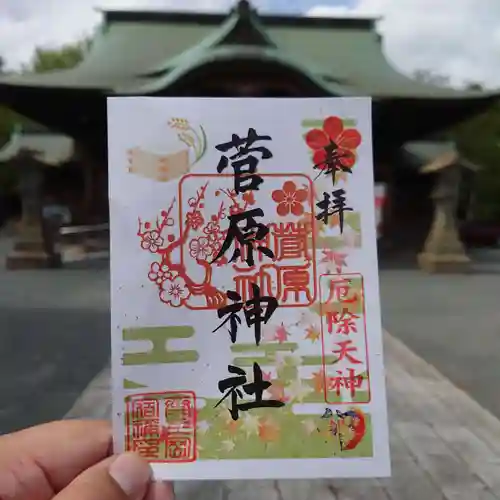 奉拝
菅原神社
菅原神社
厄除天神